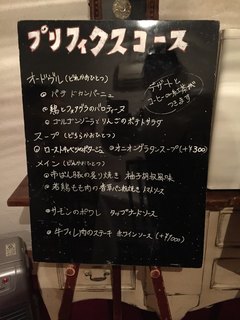 プリフィクスコース
オードヴル(どれか一つ)
◎パテ ドカンパーニュ
◎鶏とフォアグラのバロティーヌ
◎ゴルゴンゾーラとりんごのポテトサラダ
デザートと
コーヒー
つきます
スープ(どちらか一つ)
◎ローストキャベツのポタージュ ◎オニオングラタンスープ(+¥300)
メイン(どれか一つ)
の炙り焼き 柚子胡椒風味
◎若鶏もも肉の香草パン粉焼き トマトソース
◎サーモンのポワレ タップナードソース
◎牛フィレ肉のステーキ 赤ワインソース(+¥1000)